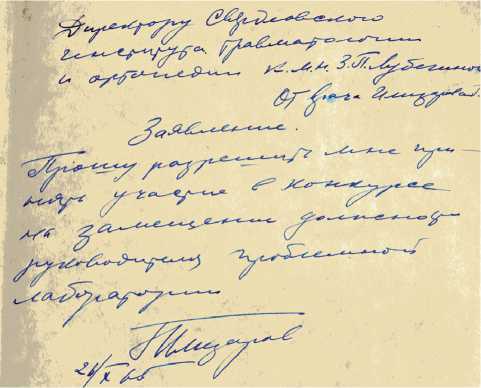 Директору Свердловского
института травматологии
и ортопедии к.м.н. З.П. Лубегиной
От врача Илизарова Г.
Заявление.
Прошу разрешить мне при-
нять участие в конкурсе
на замещении должности
руководителя проблемной
лаборатории
Г Илизаров